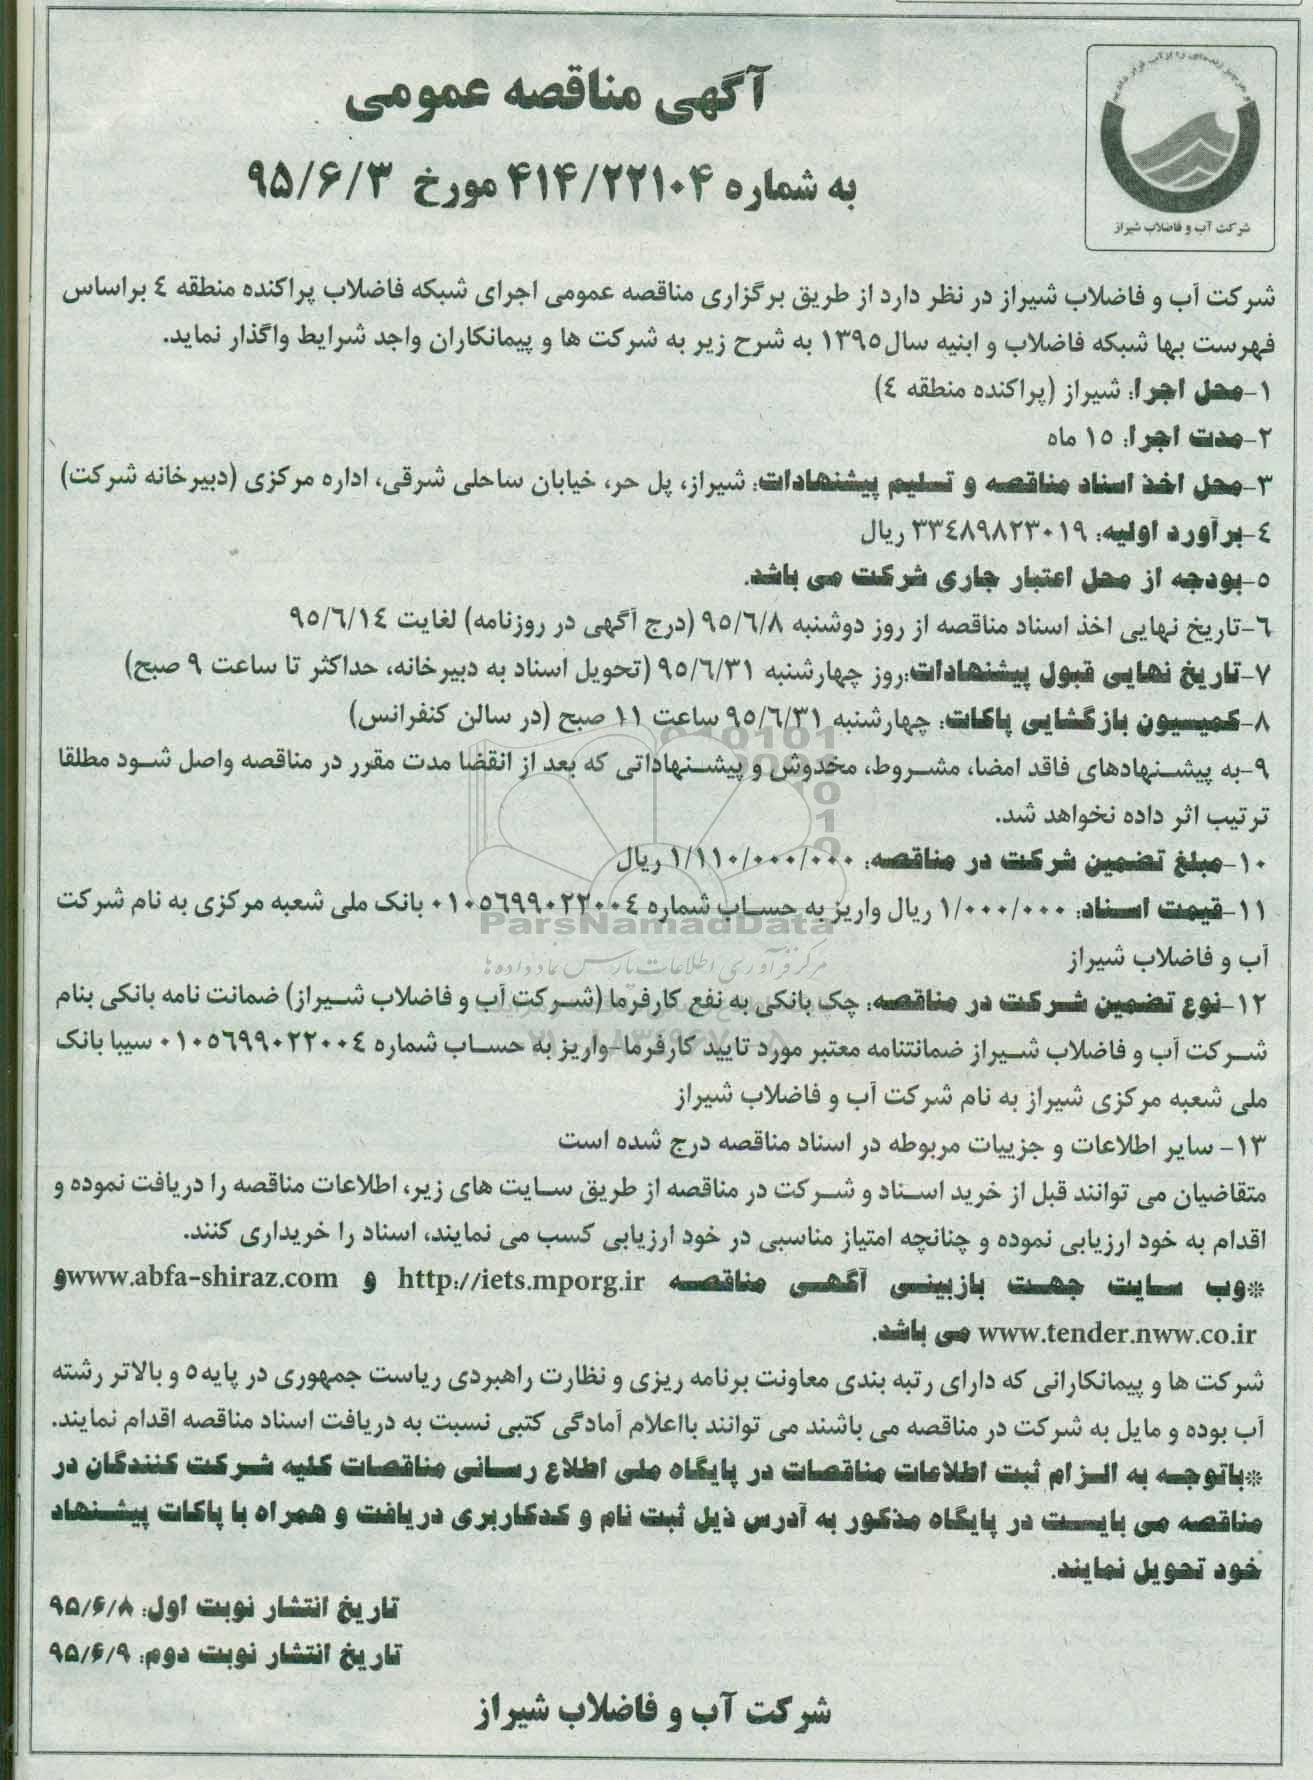 شرکت آب و فاضلاب شیراز
آگهی مناقصه عمومی
به شماره ۴۱۴/۲۲۱۰۴ مورخ ۹۵/۶/۳
شرکت آب و فاضلاب شیراز در نظر دارد از طریق برگزاری مناقصه عمومی اجرای شبکه فاضلاب پراکنده منطقه ٤ براساس
فهرست بها شبکه فاضلاب و ابنیه سال۱۳۹۵ به شرح زیر به شرکت ها و پیمانکاران واجد شرایط واگذار نماید.
۱-محل اجرا: شیراز (پراکنده منطقه ٤)
۲-مدت اجرا: ۱۵ ماه
۳-محل اخذ اسناد مناقصه و تسلیم پیشنهادات: شیراز، پل حر، خیابان ساحلی شرقی، اداره مرکزی (دبیرخانه شرکت)
٤-برآورد اولیه: ۳۳٤۸۹۸۲۳۰۱۹ ریال
۵-بودجه از محل اعتبار جاری شرکت می باشد.
٦-تاریخ نهایی اخذ اسناد مناقصه از روز دوشنبه ۹۵/٦/۸ (درج آگهی در روزنامه) لغایت ۹۵/٦/۱٤
۷-تاریخ نهایی قبول پیشنهادات:روز چهارشنبه ۹۵/٦/۳۱ (تحویل اسناد به دبیرخانه، حداکثر تا ساعت ۹ صبح)
۸-کمیسیون بازگشایی پاکات: چهارشنبه ۹۵/٦/۳۱ ساعت ۱۱ صبح (در سالن کنفرانس)
۹-به پیشنهادهای فاقد امضا، مشروط، مخدوش و پیشنهاداتی که بعد از انقضا مدت مقرر در مناقصه واصل شود مطلقا
ترتیب اثر داده نخواهد شد.
۱۰-مبلغ تضمین شرکت در مناقصه: ۱/۱۱۰/۰۰۰/۰۰۰ ریال
۱۱-قیمت اسناد: ۱/۰۰۰/۰۰۰ ریال واریز به حساب شماره ۰۱۰۵٦۹۹۰۲۲۰۰٤ بانک ملی شعبه مرکزی به نام شرکت
آب و فاضلاب شیراز
ParsNamadData
مرکز فرآوری اطلاعات پارس نماد داده ها
۱۲-نوع تضمین شرکت در مناقصه: چک بانکی به نفع کارفرما (شرکت آب و فاضلاب شیراز) ضمانت نامه بانکی بنام
شرکت آب و فاضلاب شیراز ضمانتنامه معتبر مورد تایید کارفرما-واریز به حساب شماره ۰۱۰۵٦۹۹۰۲۲۰۰٤ سیبا بانک
ملی شعبه مرکزی شیراز به نام شرکت آب و فاضلاب شیراز
۱۳- سایر اطلاعات و جزییات مربوطه در اسناد مناقصه درج شده است
متقاضیان می توانند قبل از خرید اسناد و شرکت در مناقصه از طریق سایت های زیر، اطلاعات مناقصه را دریافت نموده و
اقدام به خود ارزیابی نموده و چنانچه امتیاز مناسبی در خود ارزیابی کسب می نمایند، اسناد را خریداری کنند.
*وب سایت جهت بازبینی آگهی مناقصه http://iets.mporg.ir و www.abfa-shiraz.comو
www.tender.nww.co.ir می باشد.
شرکت ها و پیمانکارانی که دارای رتبه بندی معاونت برنامه ریزی و نظارت راهبردی ریاست جمهوری در پایه۵ و بالاتر رشته
آب بوده و مایل به شرکت در مناقصه می باشند می توانند بااعلام آمادگی کتبی نسبت به دریافت اسناد مناقصه اقدام نمایند.
*باتوجه به الزام ثبت اطلاعات مناقصات در پایگاه ملی اطلاع رسانی مناقصات کلیه شرکت کنندگان در
مناقصه می بایست در پایگاه مذکور به آدرس ذیل ثبت نام و کدکاربری دریافت و همراه با پاکات پیشنهاد
خود تحویل نمایند.
تاریخ انتشار نوبت اول: ۹۵/۶/۸
تاریخ انتشار نوبت دوم: ۹۵/۶/۹
شرکت آب و فاضلاب شیراز